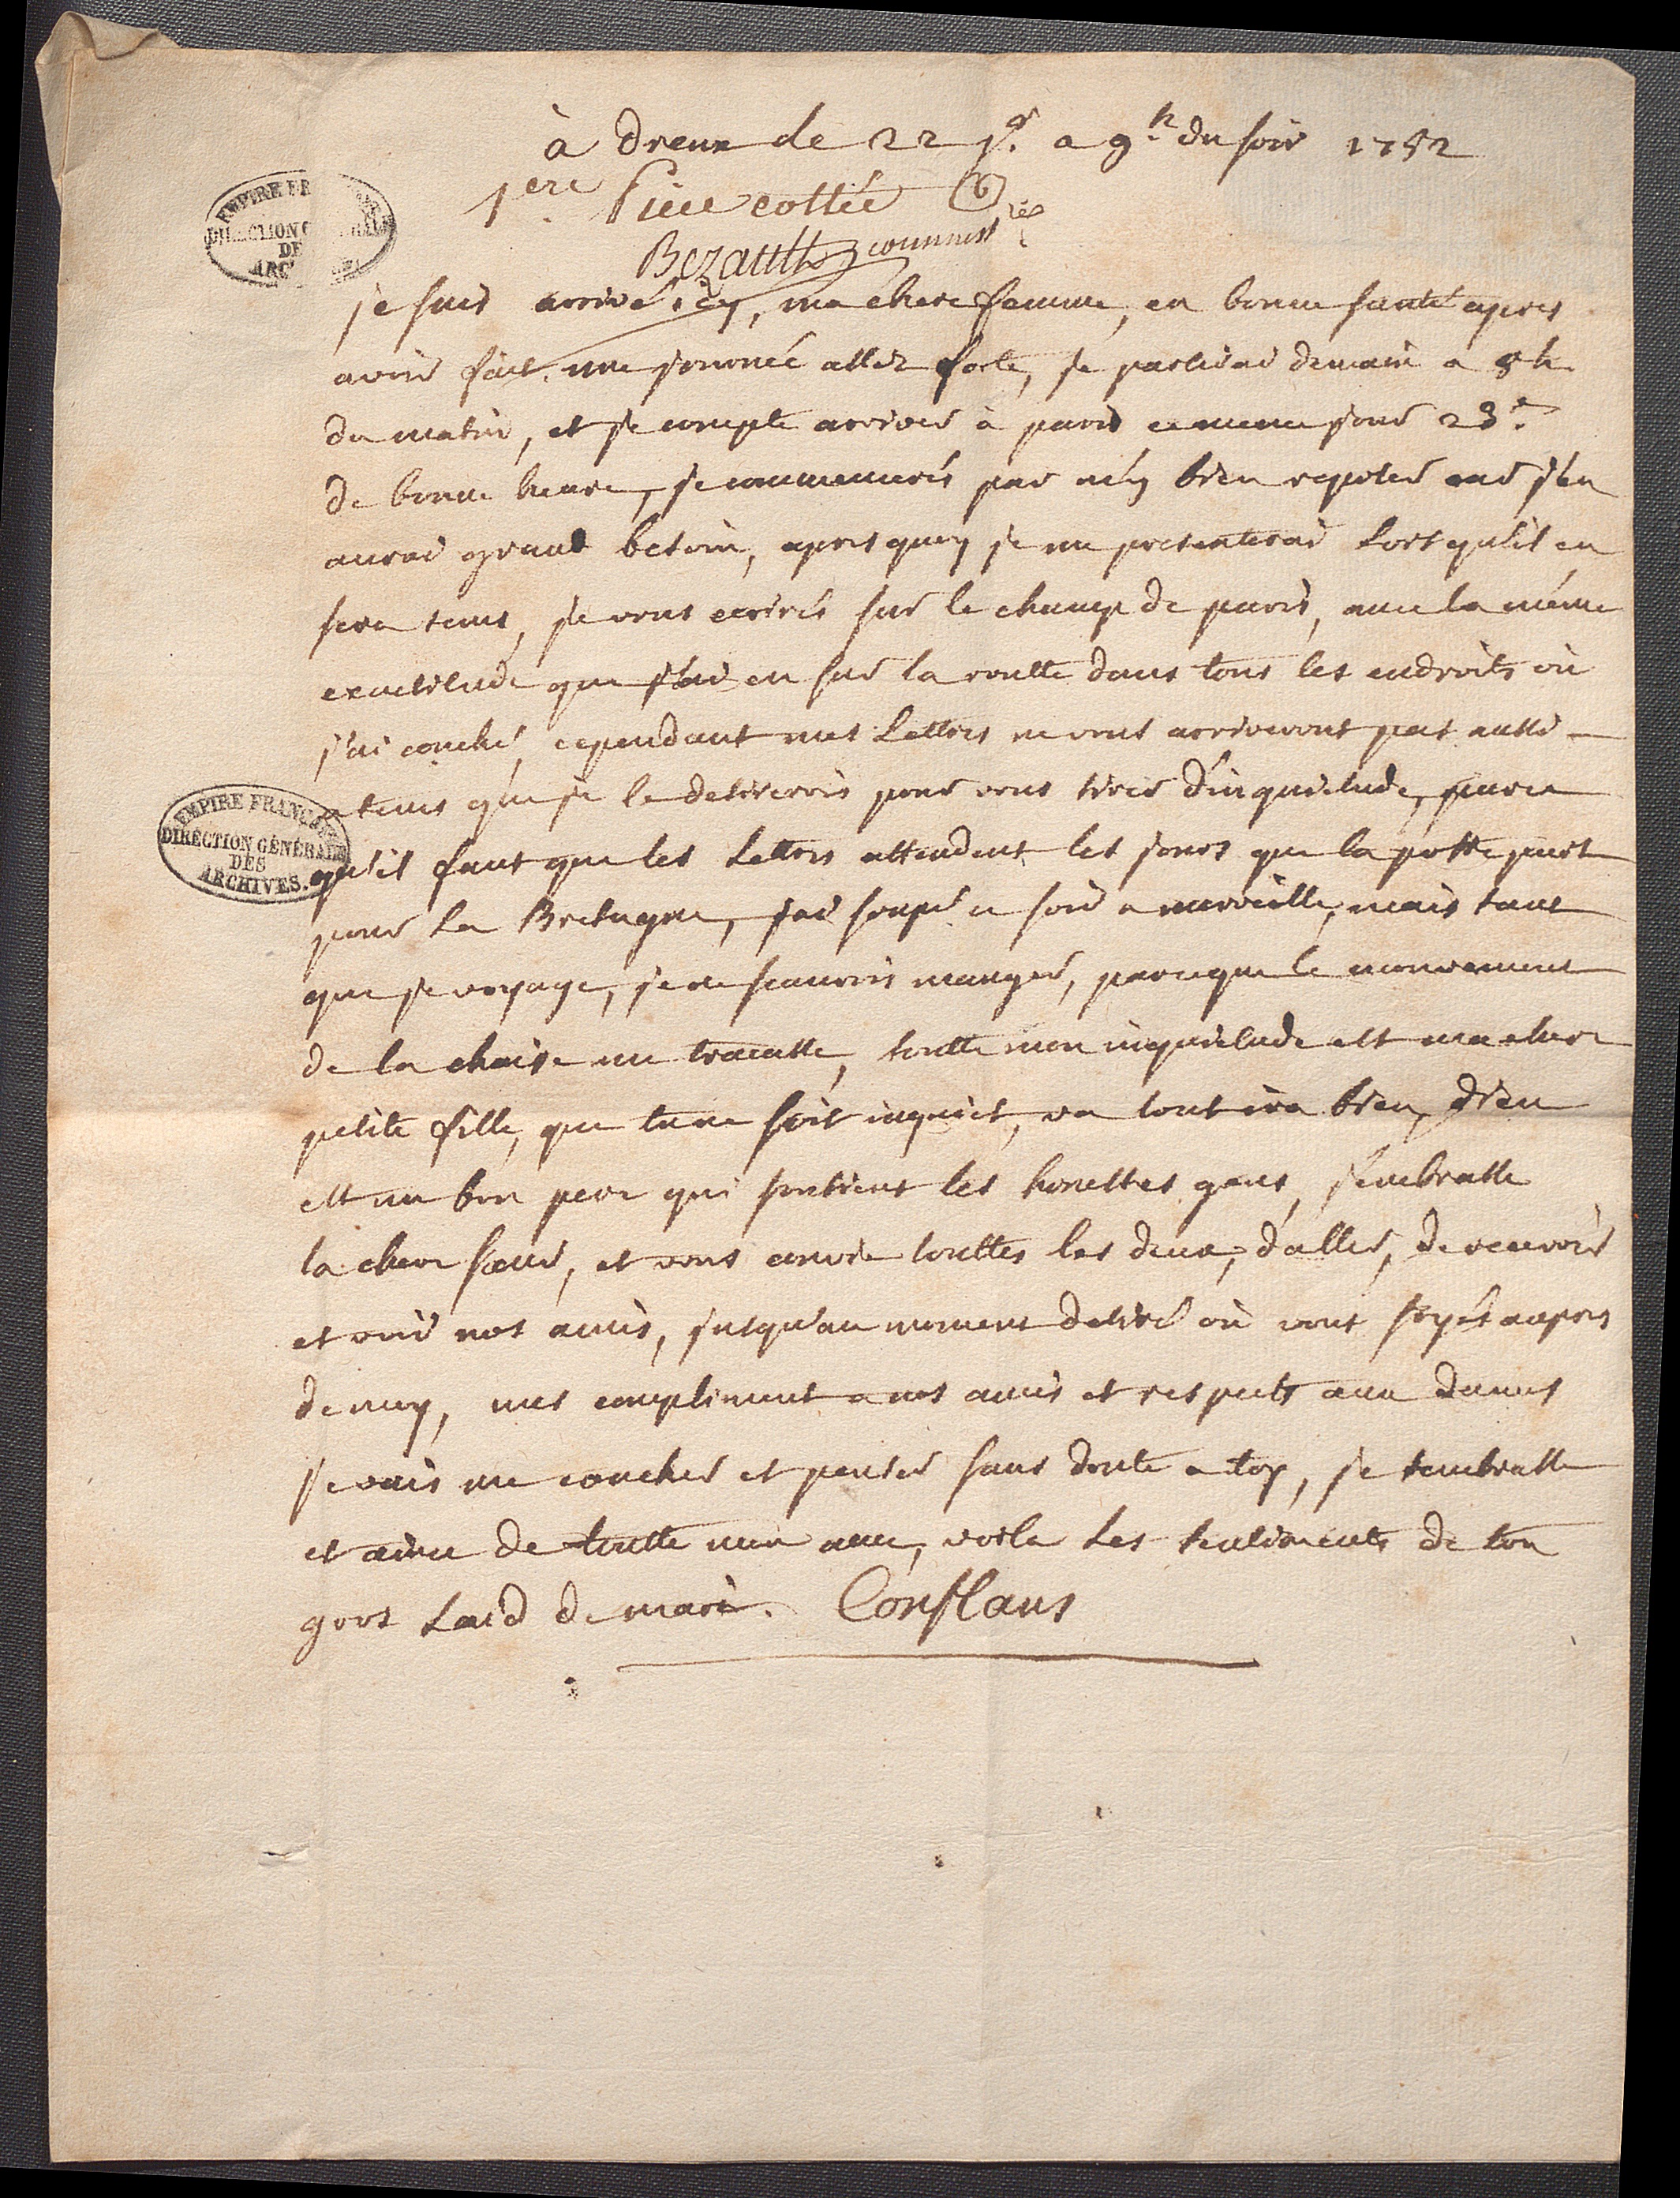 à Dreux le 22 1.r a 9.h du soir 1752
1.ere Piece cottée 6
Bezault commiss.re
EMPIRE FR
DIRECTION G
DES
ARCHIVES
je suis arrivé icy, ma chere femme, en bonne santé apres
avoir fait une journée assez forte, je partirai demain a 8h
du matin, et je compte arriver à paris ce meme jour 23.e
de bonne heure, je commencerés par m'y bien reposer car j'en
aurai grand besoin, apres quoy je me presenterai lors qu'il en
sera tems, je vous ecrirés sur le champ de paris, avec la même
exactitude que j'ai eu sur la routte dans tous les endroits où
j'ai couché, cependant mes Lettres ne vous arriveront pas aussi
EMPIRE FRANÇAIS
DIRECTION GÉNÉRALE
DES
ARCHIVES.
tems que je le desirerois pour vous tirer d'inquietude, parce
qu'il faut que les Lettres attendent les jours que la poste part
pour la Bretagne, j'ai soupé ce soir a merveille, mais tant
que je voyage, je ne scaurois manger, parce que le mouvement
de la chaise me tracasse, toutte mon inquietude est ma chere
petite fille, que tu ne soit inquiet, va tout ira bien, dieu
est un bon pere qui soutient les honestes gens, j'embrasse
ta chere sœur, et vous convie touttes les deux, d'aller, de recevoir
et voir nos amis, jusqu'au moment desiré où vous soyés aupres
de moy, mes compliment a nos amis et respects aux dames
je vais me coucher et penser sans doute a toy, je t'embrasse
et aime de toutte mon ame, voila les sentiments de ton
gros Laid de mari. Conflans